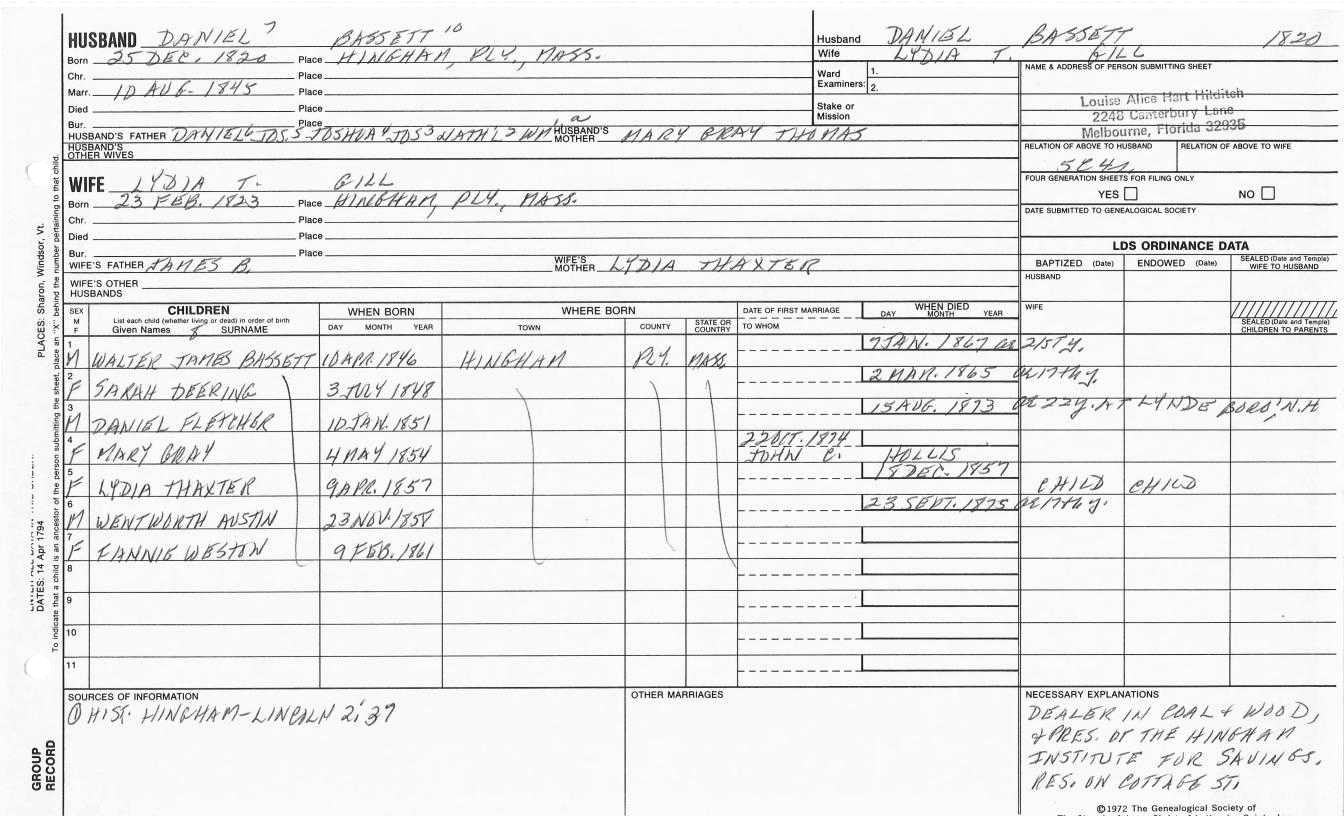 HUSBAND DANIEL 7 BASSETT 10
Born 25 DEC. 1820 Place HINGHAM, PLY., MASS.
Chr. Place
Marr. 10 AUG. 1845 Place
Died Place
Bur. Place
HUSBAND'S FATHER DANIEL 6 JOS. 5 JOSHUA 4 JOS 3 NATH'L 2 WM a HUSBAND'S MOTHER MARY GRAY THOMAS
HUSBAND'S OTHER WIVES
WIFE LYDIA T. GILL
Born 23 FEB. 1823 Place HINGHAM, PLY., MASS.
Chr. Place
Died Place
Bur. Place
WIFE'S FATHER JAMES B. WIFE'S MOTHER LYDIA THAXTER
WIFE'S OTHER HUSBANDS
Husband DANIEL BASSETT 1820
Wife LYDIA T. GILL
Ward Examiners: 1. 2.
Stake or Mission
NAME & ADDRESS OF PERSON SUBMITTING SHEET
Louise Alice Hart Hilditch
2248 Canterbury Lane
Melbourne, Florida 32935
RELATION OF ABOVE TO HUSBAND RELATION OF ABOVE TO WIFE
5C4r
FOUR GENERATION SHEETS FOR FILING ONLY
YES NO
DATE SUBMITTED TO GENEALOGICAL SOCIETY
LDS ORDINANCE DATA
BAPTIZED (Date) ENDOWED (Date) SEALED (Date and Temple) WIFE TO HUSBAND
HUSBAND
WIFE
SEALED (Date and Temple) CHILDREN TO PARENTS
SEX M F CHILDREN List each child (whether living or dead) in order of birth Given Names 8 SURNAME
WHEN BORN DAY MONTH YEAR
WHERE BORN TOWN COUNTY STATE OR COUNTRY
DATE OF FIRST MARRIAGE TO WHOM
WHEN DIED DAY MONTH YEAR
1 M WALTER JAMES BASSETT 10 APR. 1846 HINGHAM PLY. MASS. 7 JAN. 1867 ae 21st y.
2 F SARAH DEERING 3 JULY 1848 2 MAR. 1865 ae 17th y.
3 M DANIEL FLETCHER 10 JAN. 1851 15 AUG. 1873 ae 22y. AT LYNDEBORO', N.H
4 F MARY GRAY 4 MAY 1854 22 OCT. 1874 JOHN C. HOLLIS
5 F LYDIA THAXTER 9 APR. 1857 18 DEC. 1857 CHILD CHILD
6 M WENTWORTH AUSTIN 23 NOV. 1858 23 SEPT. 1875 ae 17th y.
7 F FANNIE WESTON 9 FEB. 1861
8
9
10
11
SOURCES OF INFORMATION
① HIST. HINGHAM-LINCOLN 2:37
OTHER MARRIAGES
NECESSARY EXPLANATIONS
DEALER IN COAL & WOOD,
& PRES. OF THE HINGHAM
INSTITUTE FOR SAVINGS.
RES. ON COTTAGE ST.
©1972 The Genealogical Society of
PLACES: Sharon, Windsor, Vt.
DATES: 14 Apr 1794
To indicate that a child is an ancestor of the person submitting the sheet, place an "X" behind the number pertaining to that child.
GROUP RECORD